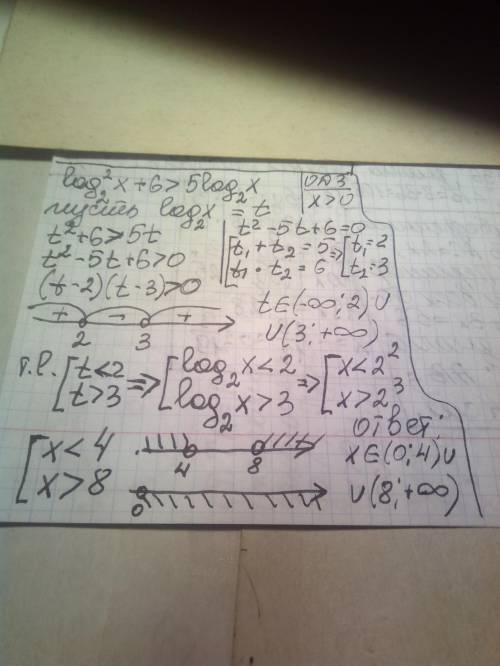 log₂²x+6>5log₂x
ОДЗ
x>0
пусть log₂x = t
t²+6>5t
t²-5t+6>0
(t-2)(t-3)>0
t²-5t+6=0
[t₁+t₂=5 => [t₁=2
[t₁·t₂=6 [t₂=3
+ - +
2 3
t∈(-∞;2)∪
∪(3;+∞)
т.е. [t<2 => [log₂x<2 => [x<2²
[t>3 [log₂x>3 [x>2³
[x<4
[x>8
4 8
0
Ответ:
x∈(0;4)∪
∪(8;+∞)